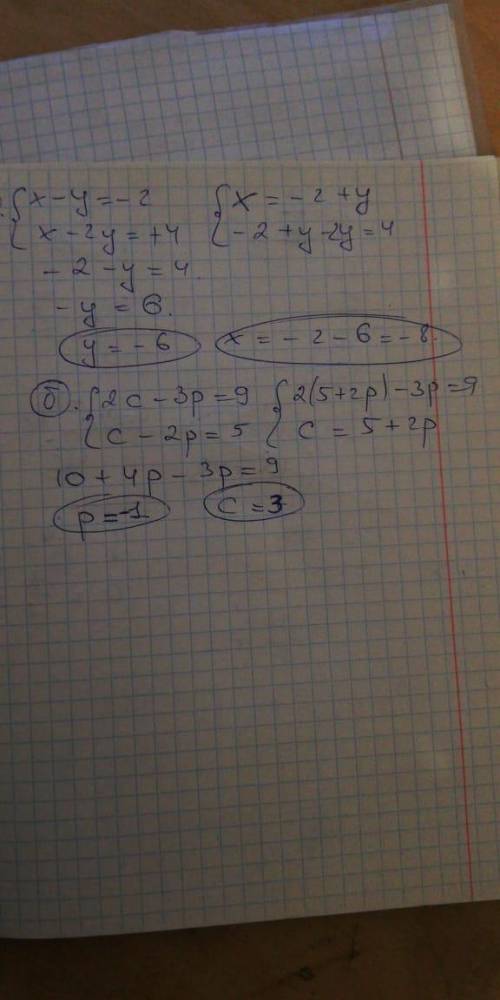 {x-y=-2 {x=-2+y
{x-2y=+4 {-2+y-2y=4
-2-y=4.
-y=6.
y=-6 x=-2-6=-8.
б. {2c-3p=9 {2(5+2p)-3p=9
{c-2p=5 {c=5+2p
10+4p-3p=9
p=-1 c=3